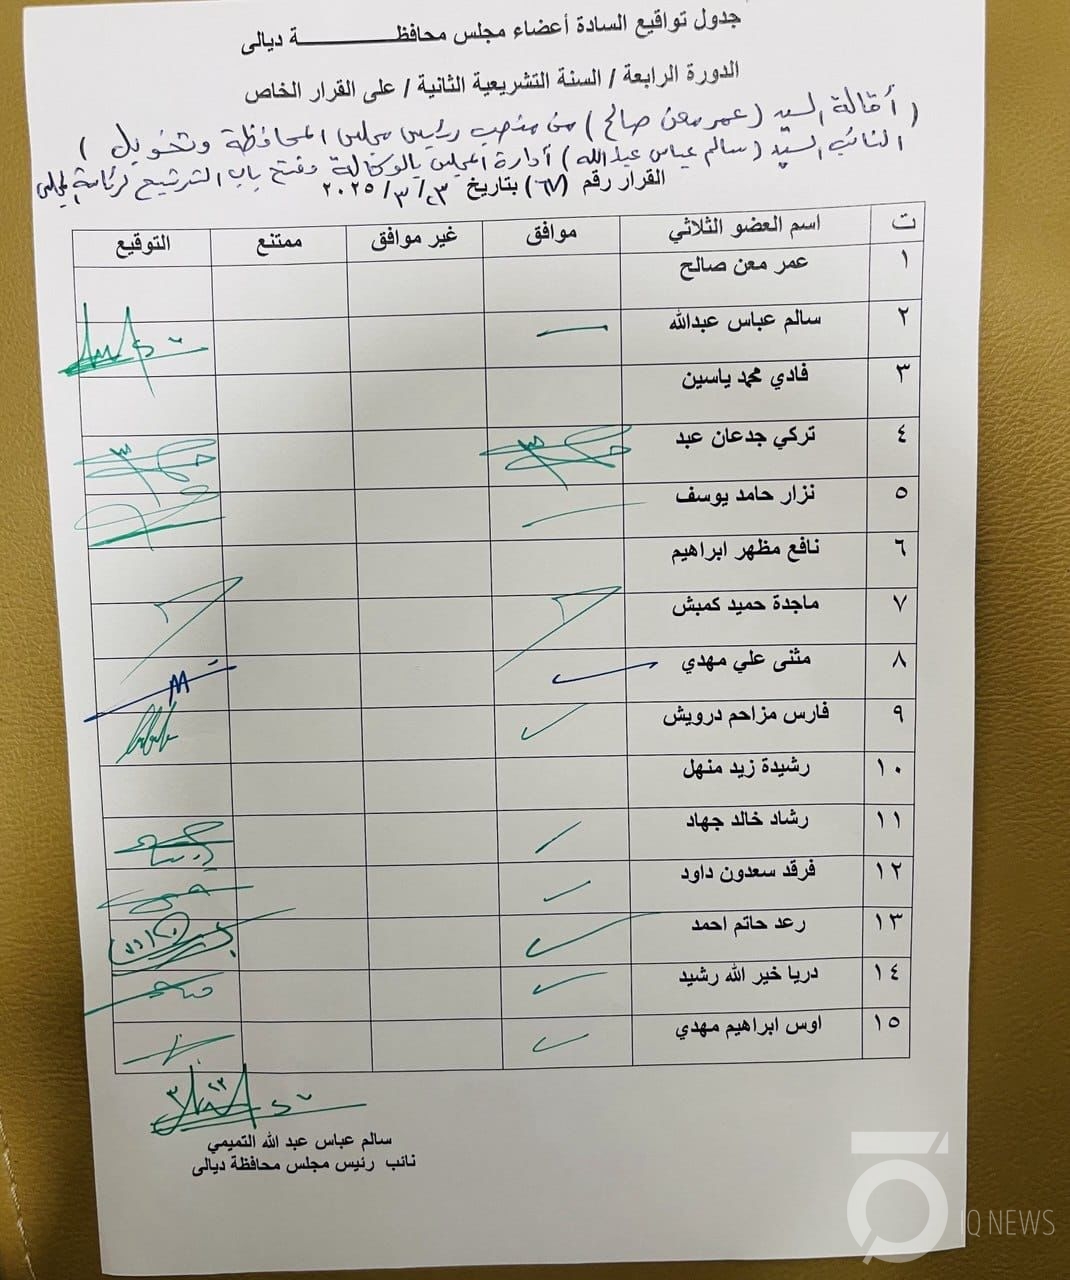 جدول تواقيع السادة أعضاء مجلس محافظـــــــــــة ديالى
الدورة الرابعة / السنة التشريعية الثانية / على القرار الخاص
( أقالة السيد (عمر معن صالح) من منصب رئيس مجلس المحافظة وتخويل )
النائب السيد (سالم عباس عبدالله) أدارة المجلس بالوكالة وفتح باب الترشيح لرئاسة المجلس
القرار رقم (٦٧) بتاريخ ٢٣/ ٣/ ٢٠٢٥
ت اسم العضو الثلاثي موافق غير موافق ممتنع التوقيع
١ عمر معن صالح
٢ سالم عباس عبدالله
٣ فادي محمد ياسين
٤ تركي جدعان عبد
٥ نزار حامد يوسف
٦ نافع مظهر ابراهيم
٧ ماجدة حميد كمبش
٨ مثنى علي مهدي
٩ فارس مزاحم درويش
١٠ رشيدة زيد منهل
١١ رشاد خالد جهاد
١٢ فرقد سعدون داود
١٣ رعد حاتم احمد
١٤ دريا خير الله رشيد
١٥ اوس ابراهيم مهدي
سالم عباس عبد الله التميمي
نائب رئيس مجلس محافظة ديالى
IQ NEWS